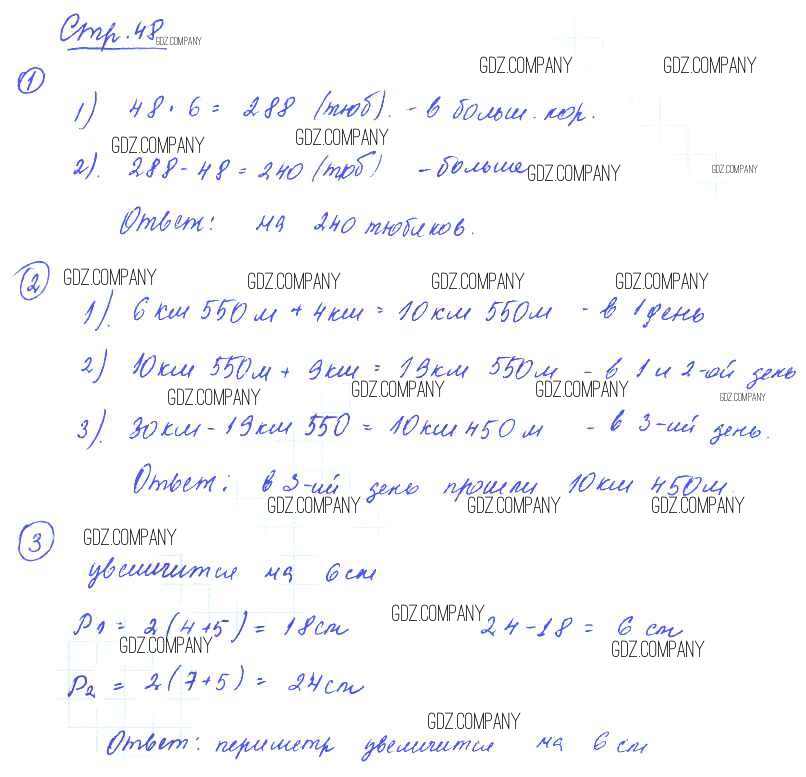 Стр. 48 GDZ.COMPANY
GDZ.COMPANY GDZ.COMPANY
1
1) 48 · 6 = 288 (тюб). - в больш. кор.
GDZ.COMPANY GDZ.COMPANY
2). 288 - 48 = 240 (тюб) - больше GDZ.COMPANY GDZ.COMPANY
Ответ: на 240 тюбиков.
2 GDZ.COMPANY GDZ.COMPANY GDZ.COMPANY GDZ.COMPANY
1). 6 км 550 м + 4 км = 10 км 550 м - в 1 день
2) 10 км 550 м + 9 км = 19 км 550 м - в 1 и 2-ой день
GDZ.COMPANY GDZ.COMPANY GDZ.COMPANY GDZ.COMPANY
3). 30 км - 19 км 550 = 10 км 450 м - в 3-ий день.
Ответ: в 3-ий день прошли 10 км 450 м.
GDZ.COMPANY GDZ.COMPANY GDZ.COMPANY
3 GDZ.COMPANY
увеличится на 6 см
P1 = 2(4+5) = 18 см GDZ.COMPANY 24 - 18 = 6 см
GDZ.COMPANY GDZ.COMPANY
P2 = 2(7+5) = 24 см
GDZ.COMPANY
Ответ: периметр увеличится на 6 см